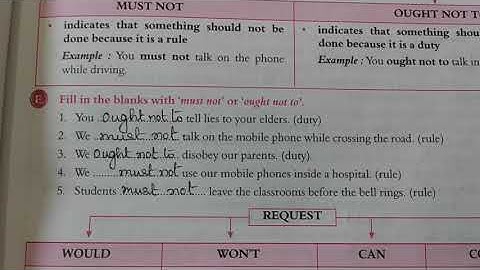 MUST NOT
OUGHT NOT TO
• indicates that something should not be
done because it is a rule
Example : You must not talk on the phone
while driving.
• indicates that something should
done because it is a duty
Example : You ought not to talk in
E Fill in the blanks with 'must not' or 'ought not to'.
1. You ought not to tell lies to your elders. (duty)
2. We must not talk on the mobile phone while crossing the road. (rule)
3. We ought not to disobey our parents. (duty)
4. We ........ must not use our mobile phones inside a hospital. (rule)
5. Students must not .... leave the classrooms before the bell rings. (rule)
REQUEST
WOULD
WON'T
CAN